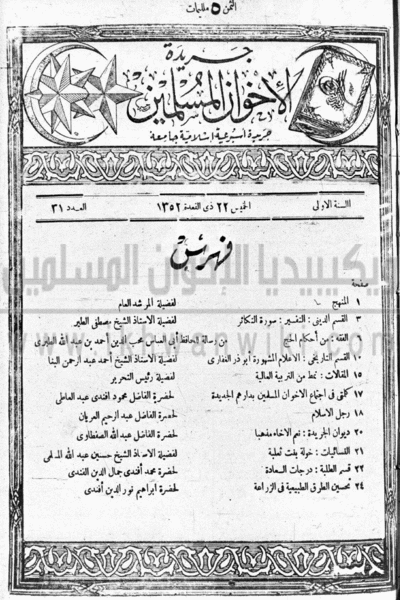 الثمن ٥ مليمات
جريدة
الإخوان المسلمين
جريدة أسبوعية إسلامية جامعة
السنة الاولى الخميس ٢٢ ذى القعدة ١٣٥٢ العدد ٣١
فهرس
صفحة
١ المنهج لفضيلة المرشد العام
٣ القسم الدينى : التفسير : سورة التكاثر لفضيلة الاستاذ الشيخ مصطفى الطير
٧ الفقه : من أحكام الحج من رسالة للحافظ أبى العباس محب الدين أحمد بن عبد الله الطبرى
١٠ القسم التاريخى : الاعلام المشهورة أبو ذر الغفارى لفضيلة الاستاذ الشيخ أحمد عبد الرحمن البنا
١٥ المقالات : نمط من التربية العالية لفضيلة رئيس التحرير
١٧ كلمتى فى اجتماع الاخوان المسلمين بدارهم الجديدة لحضرة الفاضل محمود افندى عبد العاطى
١٨ رجل الاسلام لحضرة الفاضل عبد الرحيم العريان
٢٠ ديوان الجريدة : نعم الاخاء مذهبا لحضرة الفاضل عبد الله الصفطاوى
٢١ النسائيات : خولة بنت ثعلبة لفضيلة الاستاذ الشيخ حسنين عبد الله المسلمى
٢٢ قسم الطلبة : درجات السعادة لحضرة محمد أفندى جمال الدين الفندى
٢٤ تحسين الطرق الطبيعية فى الزراعة لحضرة ابراهيم نور الدين أفندى
ويكيبيديا الإخوان المسلمين